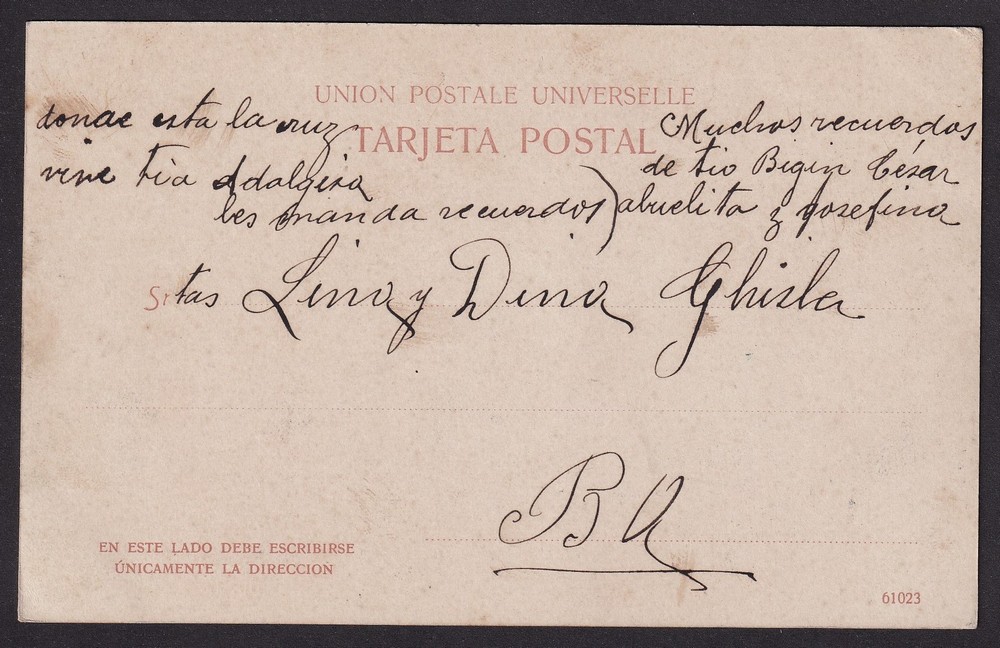 UNION POSTALE UNIVERSELLE
TARJETA POSTAL
donde esta la cruz
vive tia Adalgisa
les manda recuerdos)
Muchos recuerdos
de tio Bigin César
abuelita y Josefina
Srtas Lina y Dina Ghisla
B A
EN ESTE LADO DEBE ESCRIBIRSE
ÚNICAMENTE LA DIRECCION
61023